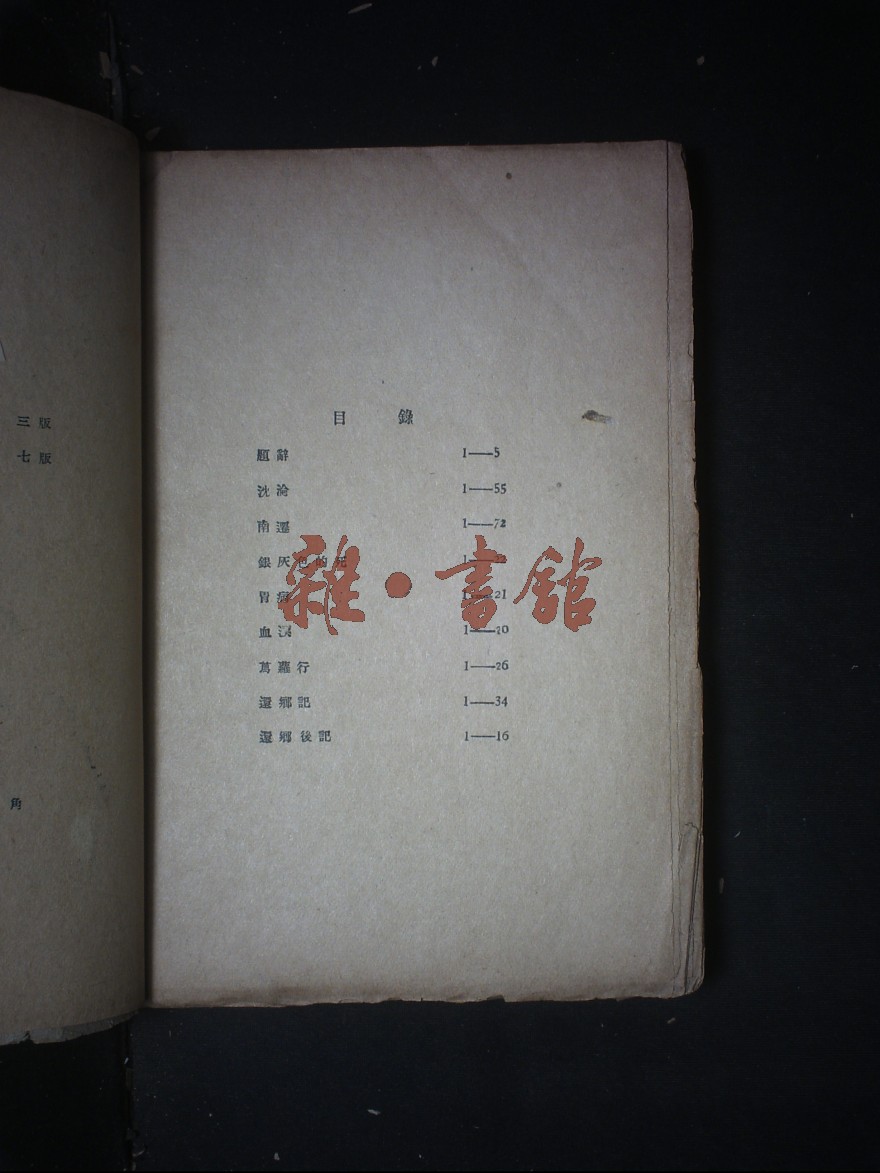 三版
七版
角
目錄
題辭 1——5
沈淪 1——55
南遷 1——72
銀灰色的死 1——
胃病 1——21
血淚 1——20
蔦蘿行 1——26
還鄉記 1——34
還鄉後記 1——16
雜·書館